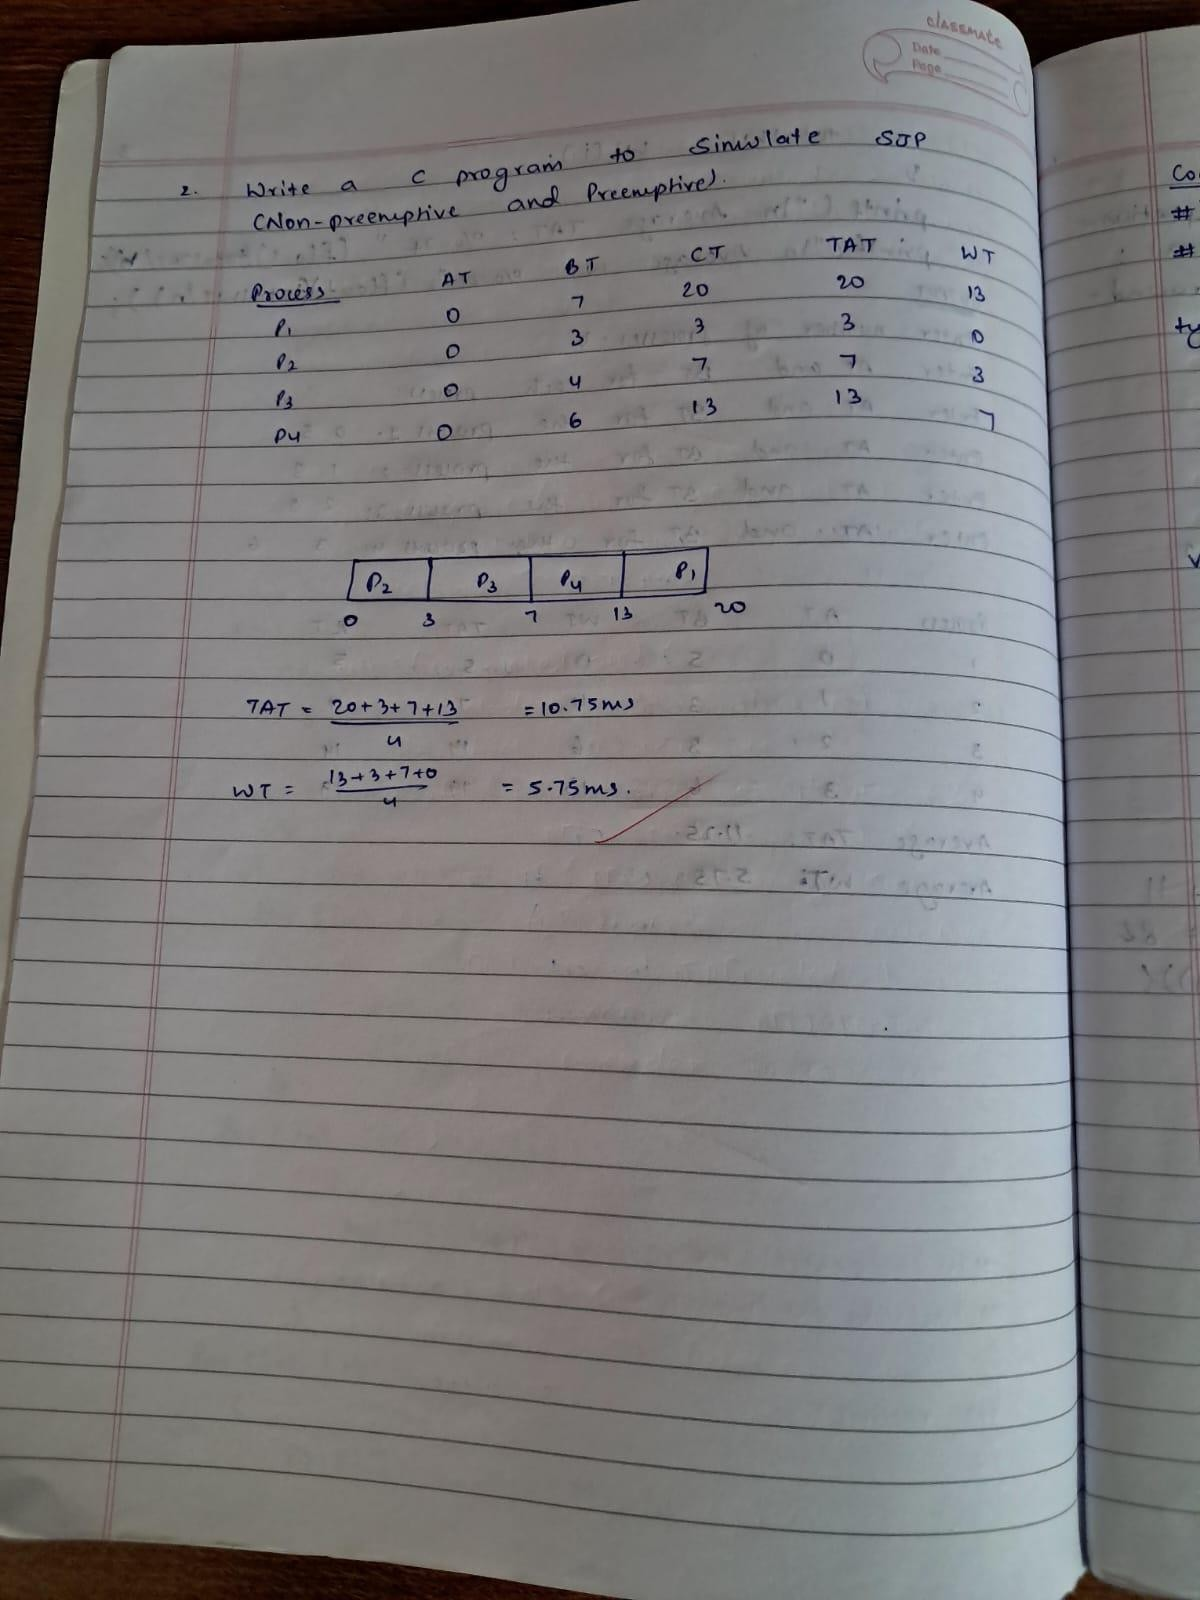 classmate
Date
Page
2. Write a C program to Simulate SJP
(Non-preemptive and Preemptive).
Process AT BT CT TAT WT
P1 0 7 20 20 13
P2 0 3 3 3 0
P3 0 4 7 7 3
P4 0 6 13 13 7
P2 P3 P4 P1
0 3 7 13 20
TAT = 20+3+7+13 / 4 = 10.75ms
WT = 13+3+7+0 / 4 = 5.75ms.
Co
#
#
ty